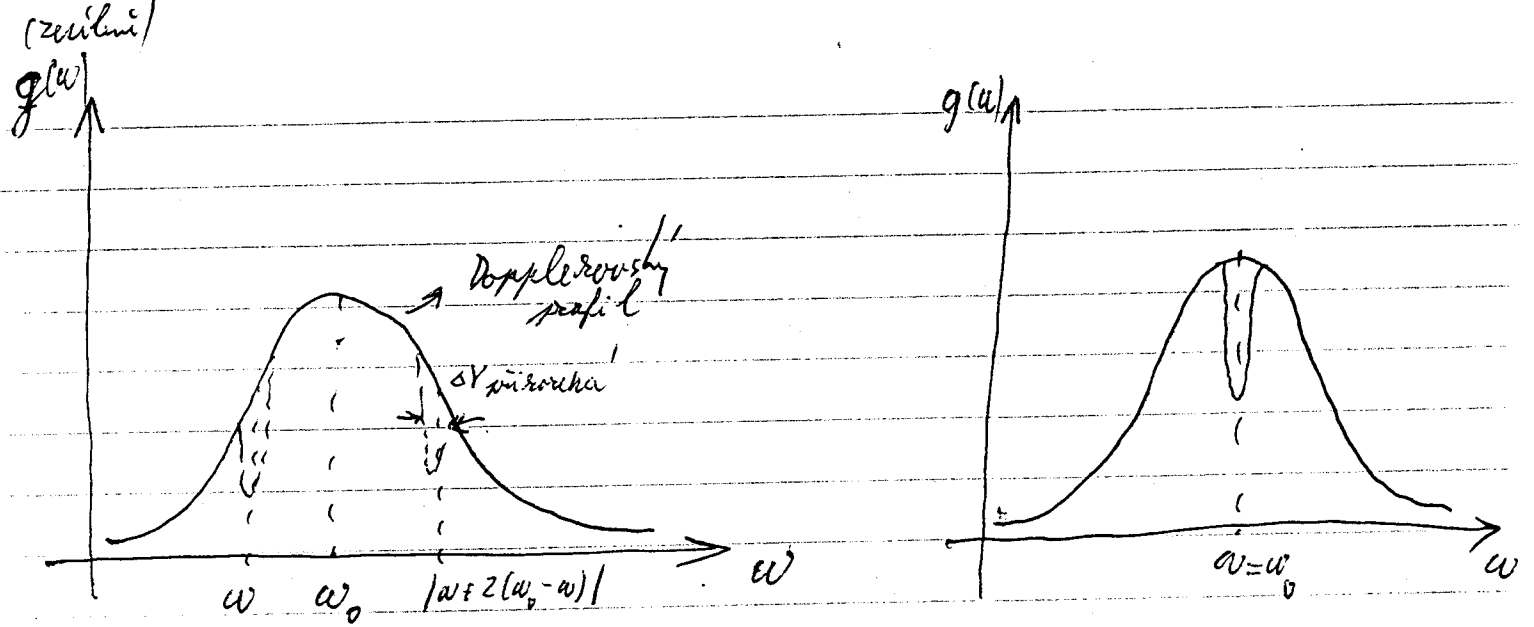 (zesílení)
g(ω)
Dopplerovský
profil
Δγ přirozená
ω
ω₀
|ω+2(ω₀-ω)|
ω
g(ω)
ω=ω₀
ω